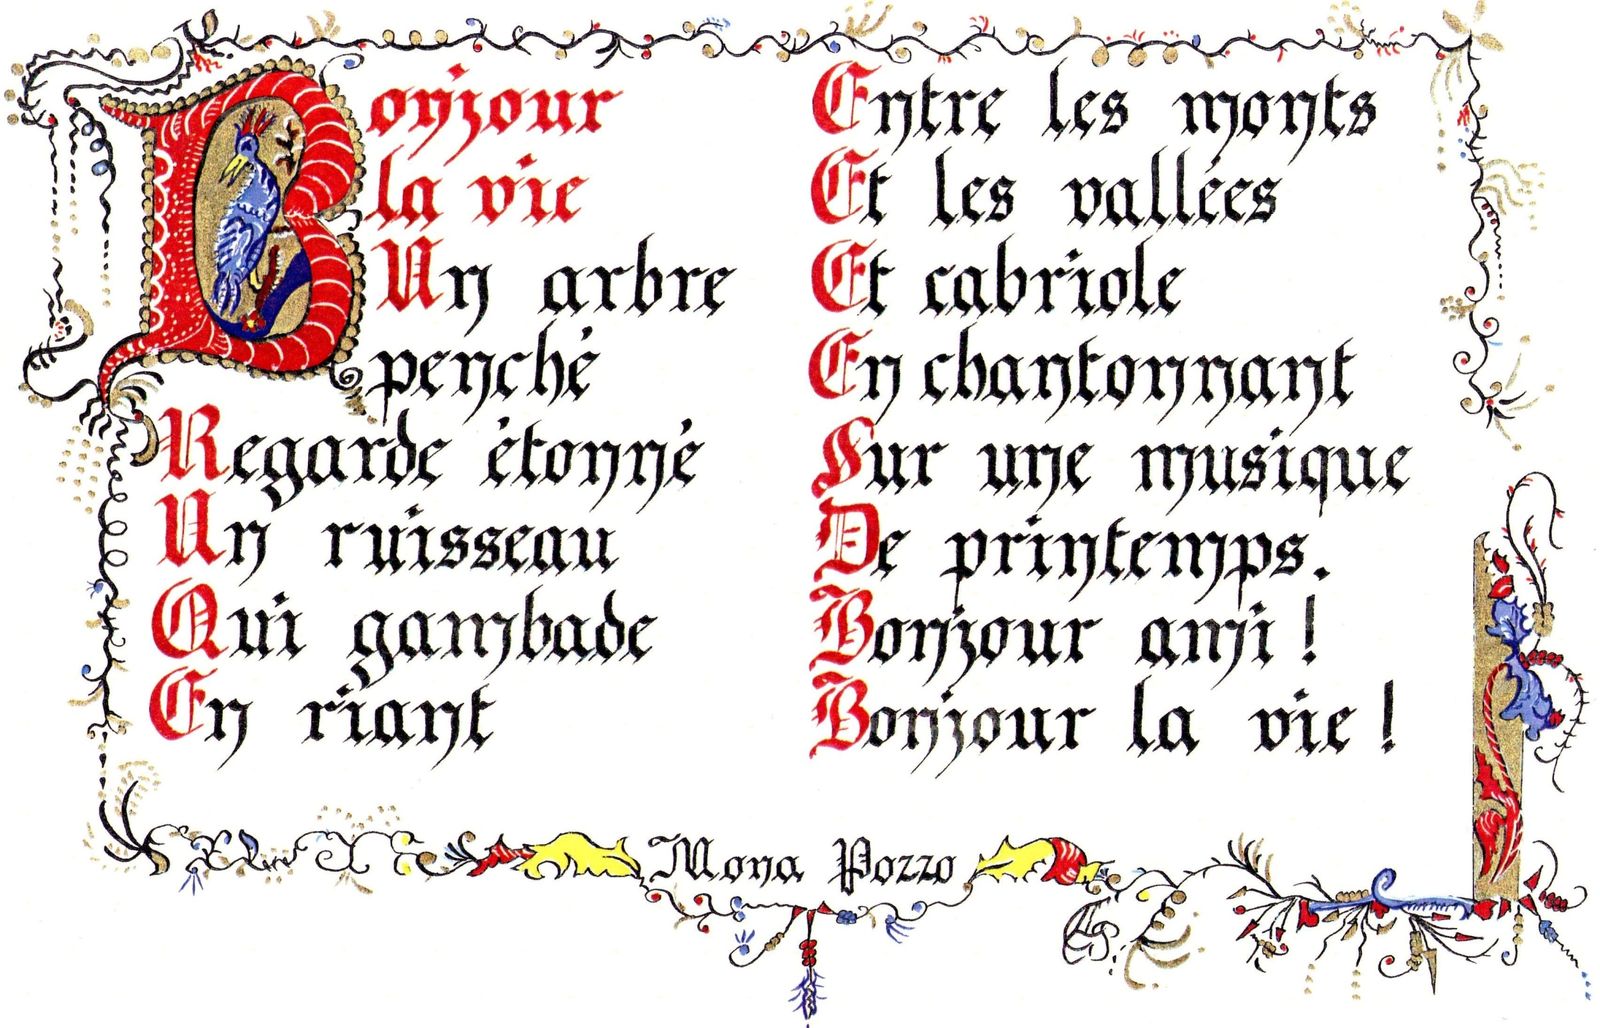 Bonjour
la vie
Un arbre
penché
Regarde étonné
Un ruisseau
Qui gambade
En riant
Entre les monts
Et les vallées
Et cabriole
En chantonnant
Sur une musique
De printemps.
Bonjour ami !
Bonjour la vie !
Mona Pozzo